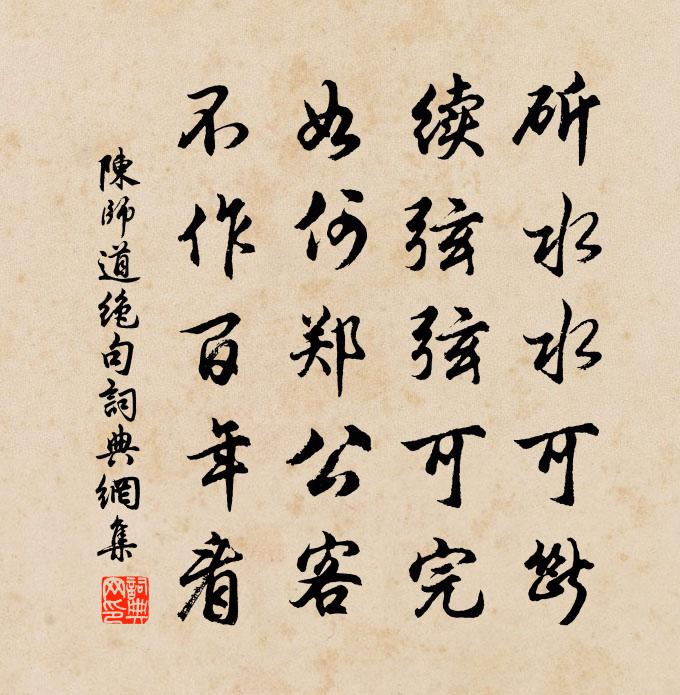 斫水水可斷
续弦弦可完
如何郑公客
不作百年看
陳師道絶句詞典網集
詞典網印